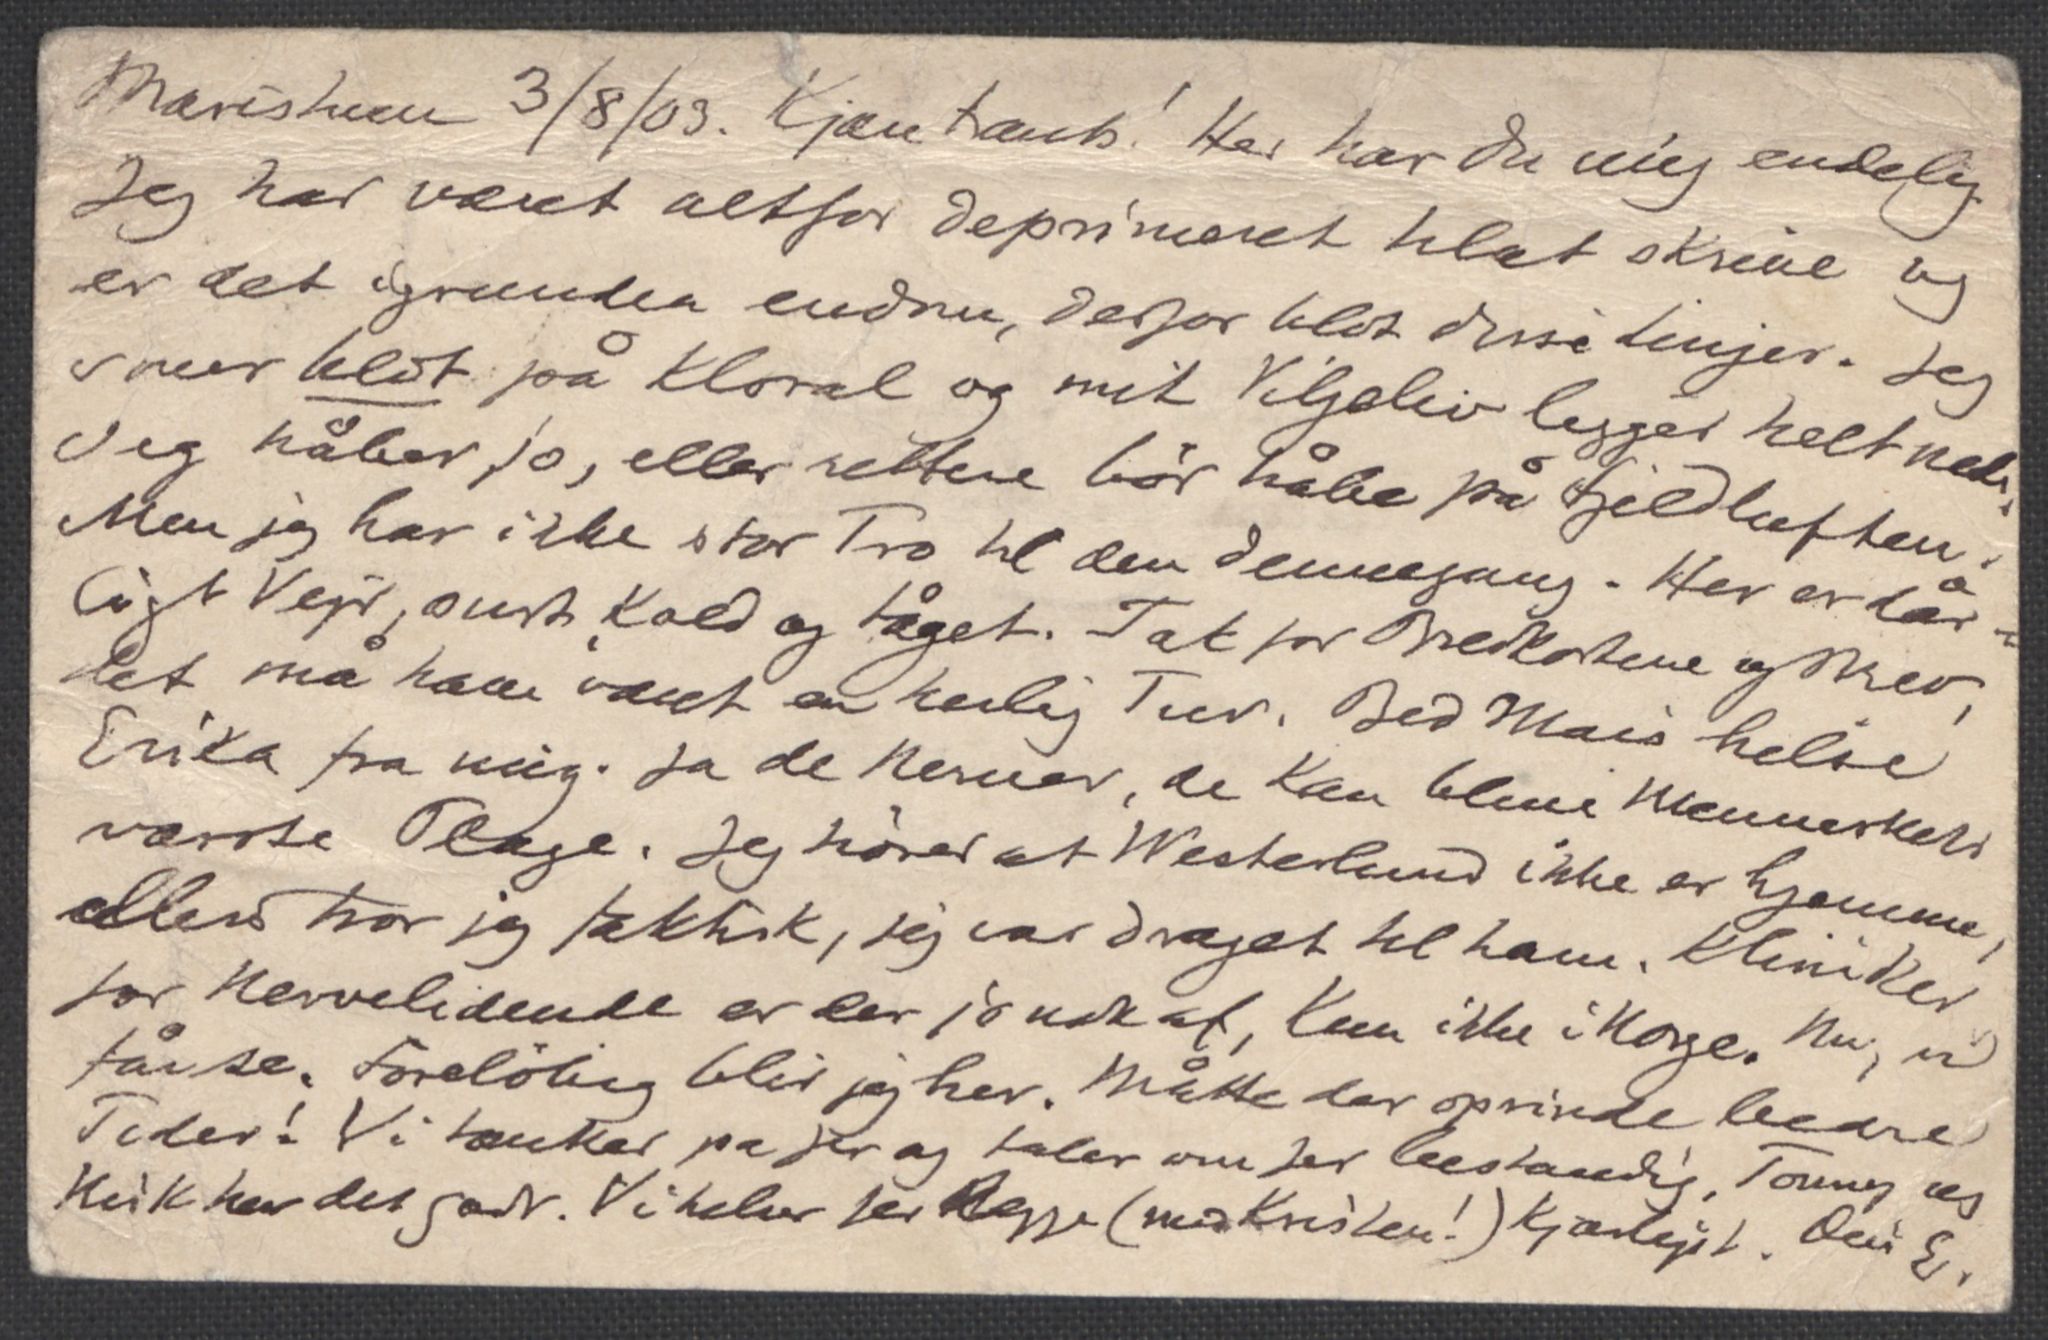 Maristuen 3/8/03. Kjære Frants! Her har du mig endelig.
Jeg har været altfor deprimeret til at skrive og
er det igrunden endnu, derfor blot disse Linjer. Jeg
sover blot på Kloral og mit Viljeliv ligger helt nede.
Jeg håber jo, eller rettere bör håbe på Fjeldluften.
Men jeg har ikke stor Tro til den dennegang. Her er dår-
ligt Vejr, surt, kold og tåget. Tak for Brevkortene og Brev,
det må have været en herlig Tur. Bed Mais hilse
Erika fra mig. Ja de Nerver, de kan blive Menneskets
værste Plage. Jeg hörer at Westerlund ikke er hjemme,
ellers tror jeg faktisk, jeg var draget til ham. Kliniker
for Nervelidende er der jo nok af, kun ikke i Norge. Nu, vi
får se. Forelöbig blir jeg her. Måtte der oprinde bedre
Tider! Vi tænker på Jer og taler om Jer bestandig. Tonny og
har det godt. Vi hilser Jer Begge (med Kristen!) kjærligst. Din E.